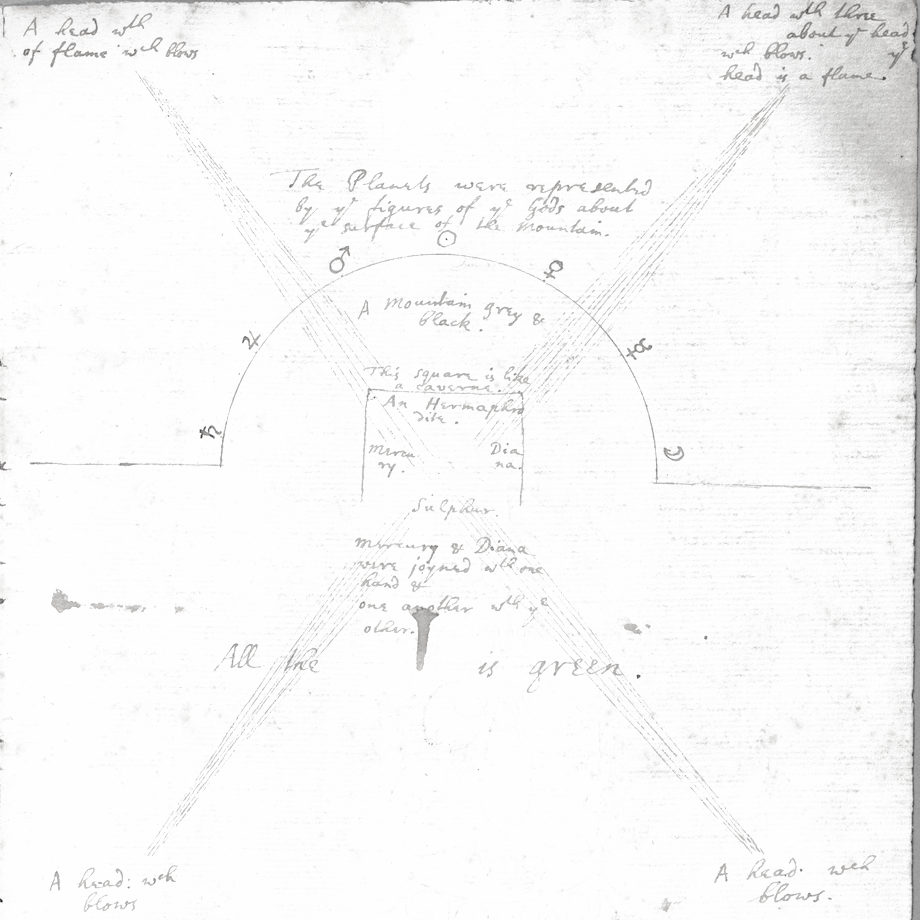 A head wth
of flame wch blows
A head wth three
about ye head
wch blows. ye
head is a flame.
The Planets were represented
by ye figures of ye Gods about
ye surface of the Mountain.
☉
♂ ♀
A Mountain grey &
black.
♃ ☿
This square is like
a caverne.
An Hermaphro
dite.
♄ ☾
Mercu
ry.
Dia
na.
Sulphur.
Mercury & Diana
were joyned wth one
hand &
one another wth ye
other.
All the is green.
A head: wch
blows
A head. wch
blows.